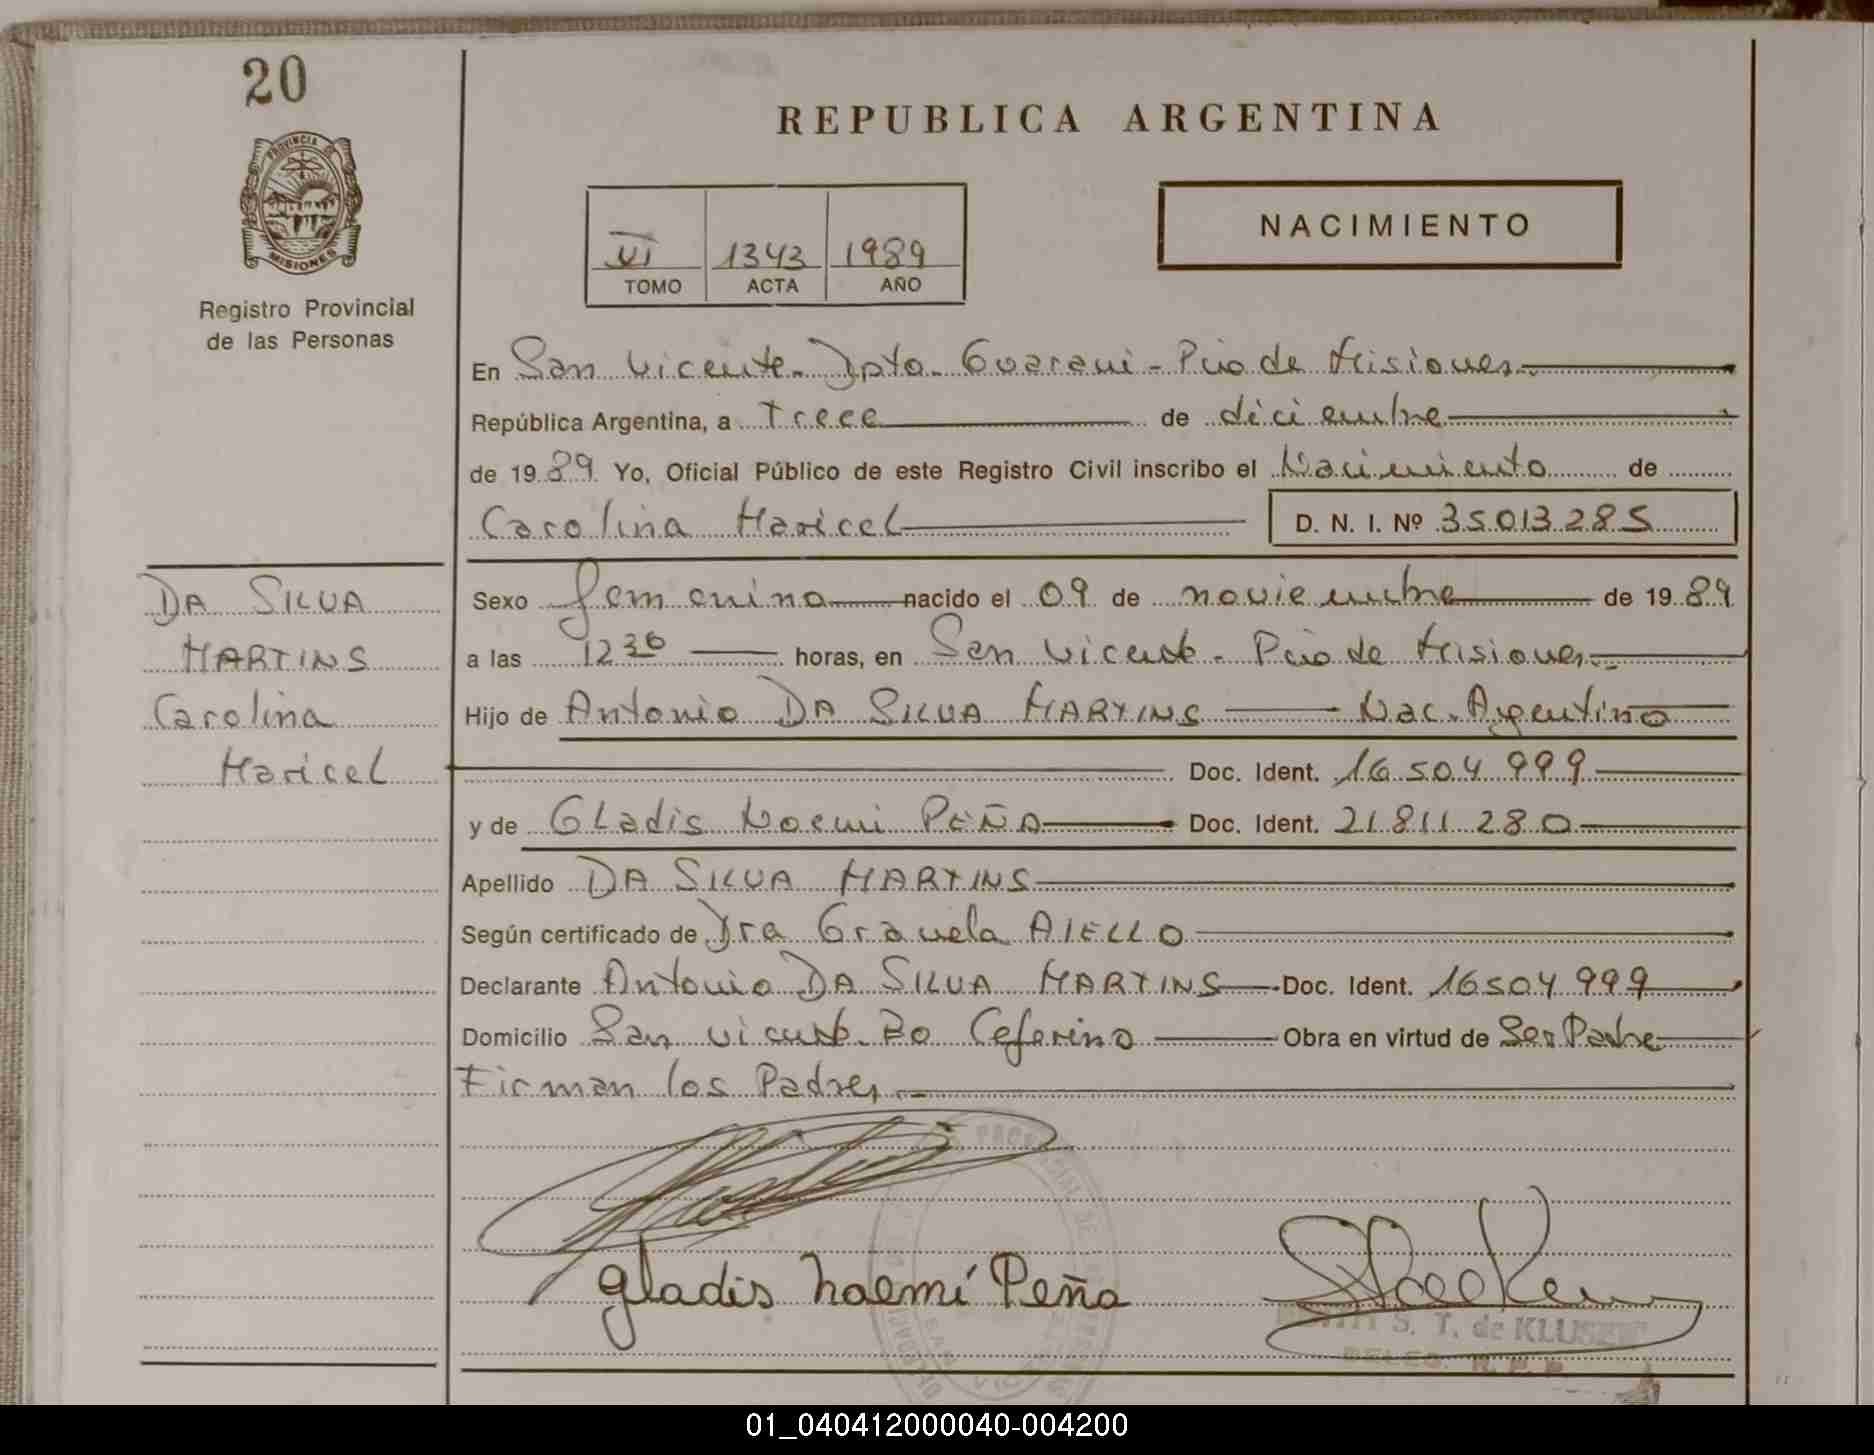 20
REPUBLICA ARGENTINA
PROVINCIA DE
MISIONES
Registro Provincial
de las Personas
VI 1343 1989
TOMO ACTA AÑO
NACIMIENTO
En San Vicente - Dpto. Guarani - Pcia de Misiones
República Argentina, a Trece de diciembre
de 19 89 Yo, Oficial Público de este Registro Civil inscribo el Nacimiento de
Carolina Maricel D. N. I. Nº 35013285
DA SILVA
MARTINS
Carolina
Maricel
Sexo femenino nacido el 09 de noviembre de 19 89
a las 12 30 horas, en San Vicente - Pcia de Misiones
Hijo de Antonio DA SILVA MARTINS Nac. Argentino
Doc. Ident. 16 504 999
y de Gladis Noemi PEÑA Doc. Ident. 21 811 280
Apellido DA SILVA MARTINS
Según certificado de Dra Graciela AIELLO
Declarante Antonio DA SILVA MARTINS Doc. Ident. 16504 999
Domicilio San Vicente Bo Ceferino Obra en virtud de Ser Padre
Firman los Padres
gladis noemí Peña
S. T. de KLUSEN
DELEG. R. P. P.
01_040412000040-004200